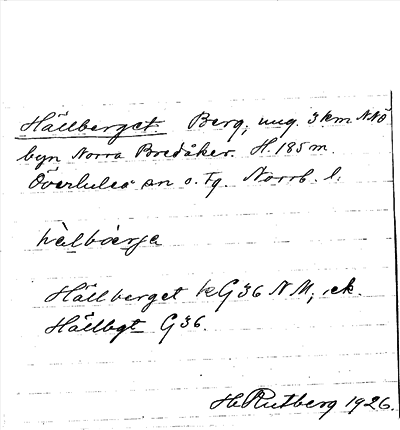 Hällberget. Berg, ung. 3 km NNÖ
byn Norra Bredåker. H. 185 m.
Överluleå sn o. tg. Norrb. l.
Hällberget kG36 NM, ek.
Hällbgt G36.
H. Rutberg 1926.